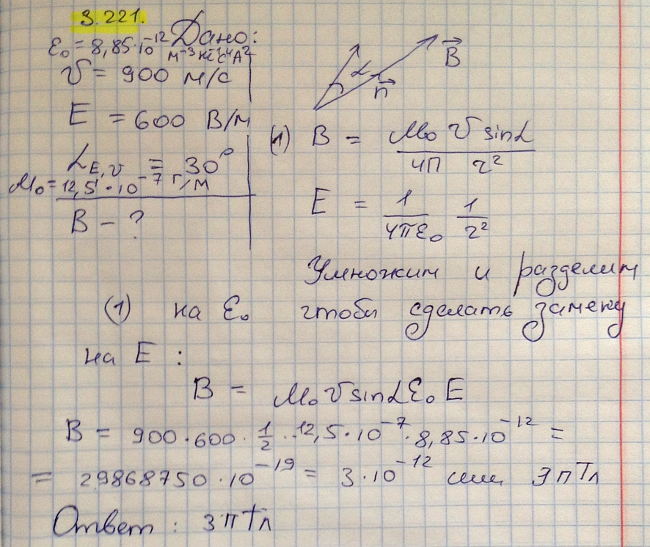 3.221. Дано:
ε₀ = 8,85·10⁻¹² м⁻³кг⁻¹с⁴А²
v = 900 м/с
E = 600 В/м
∠E,v = 30°
μ₀ = 12,5·10⁻⁷ Г/м
B - ?
α r⃗ B⃗
(1) B = μ₀ v sinα / 4π r²
E = 1 / 4πε₀ 1 / r²
Умножим и разделим
(1) на ε₀ чтобы сделать замену
на E :
B = μ₀ v sinα ε₀ E
B = 900·600·1/2·12,5·10⁻⁷·8,85·10⁻¹² =
= 29868750·10⁻¹⁹ = 3·10⁻¹² или 3пТл
Ответ : 3пТл